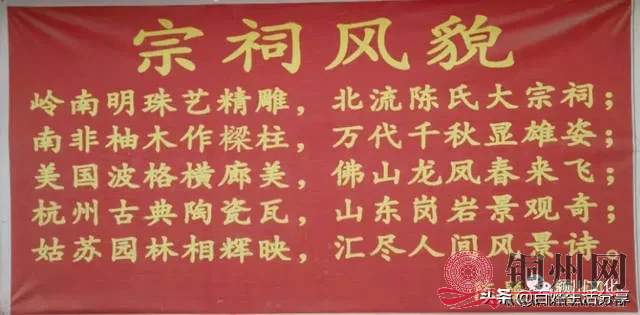 宗祠风貌
岭南明珠艺精雕，北流陈氏大宗祠；
南非柚木作樑柱，万代千秋显雄姿；
美国波格横廊美，佛山龙凤春来飞；
杭州古典陶瓷瓦，山东岗岩景观奇；
姑苏园林相辉映，汇尽人间风景诗。
铜州网
头条@百姓生活分享